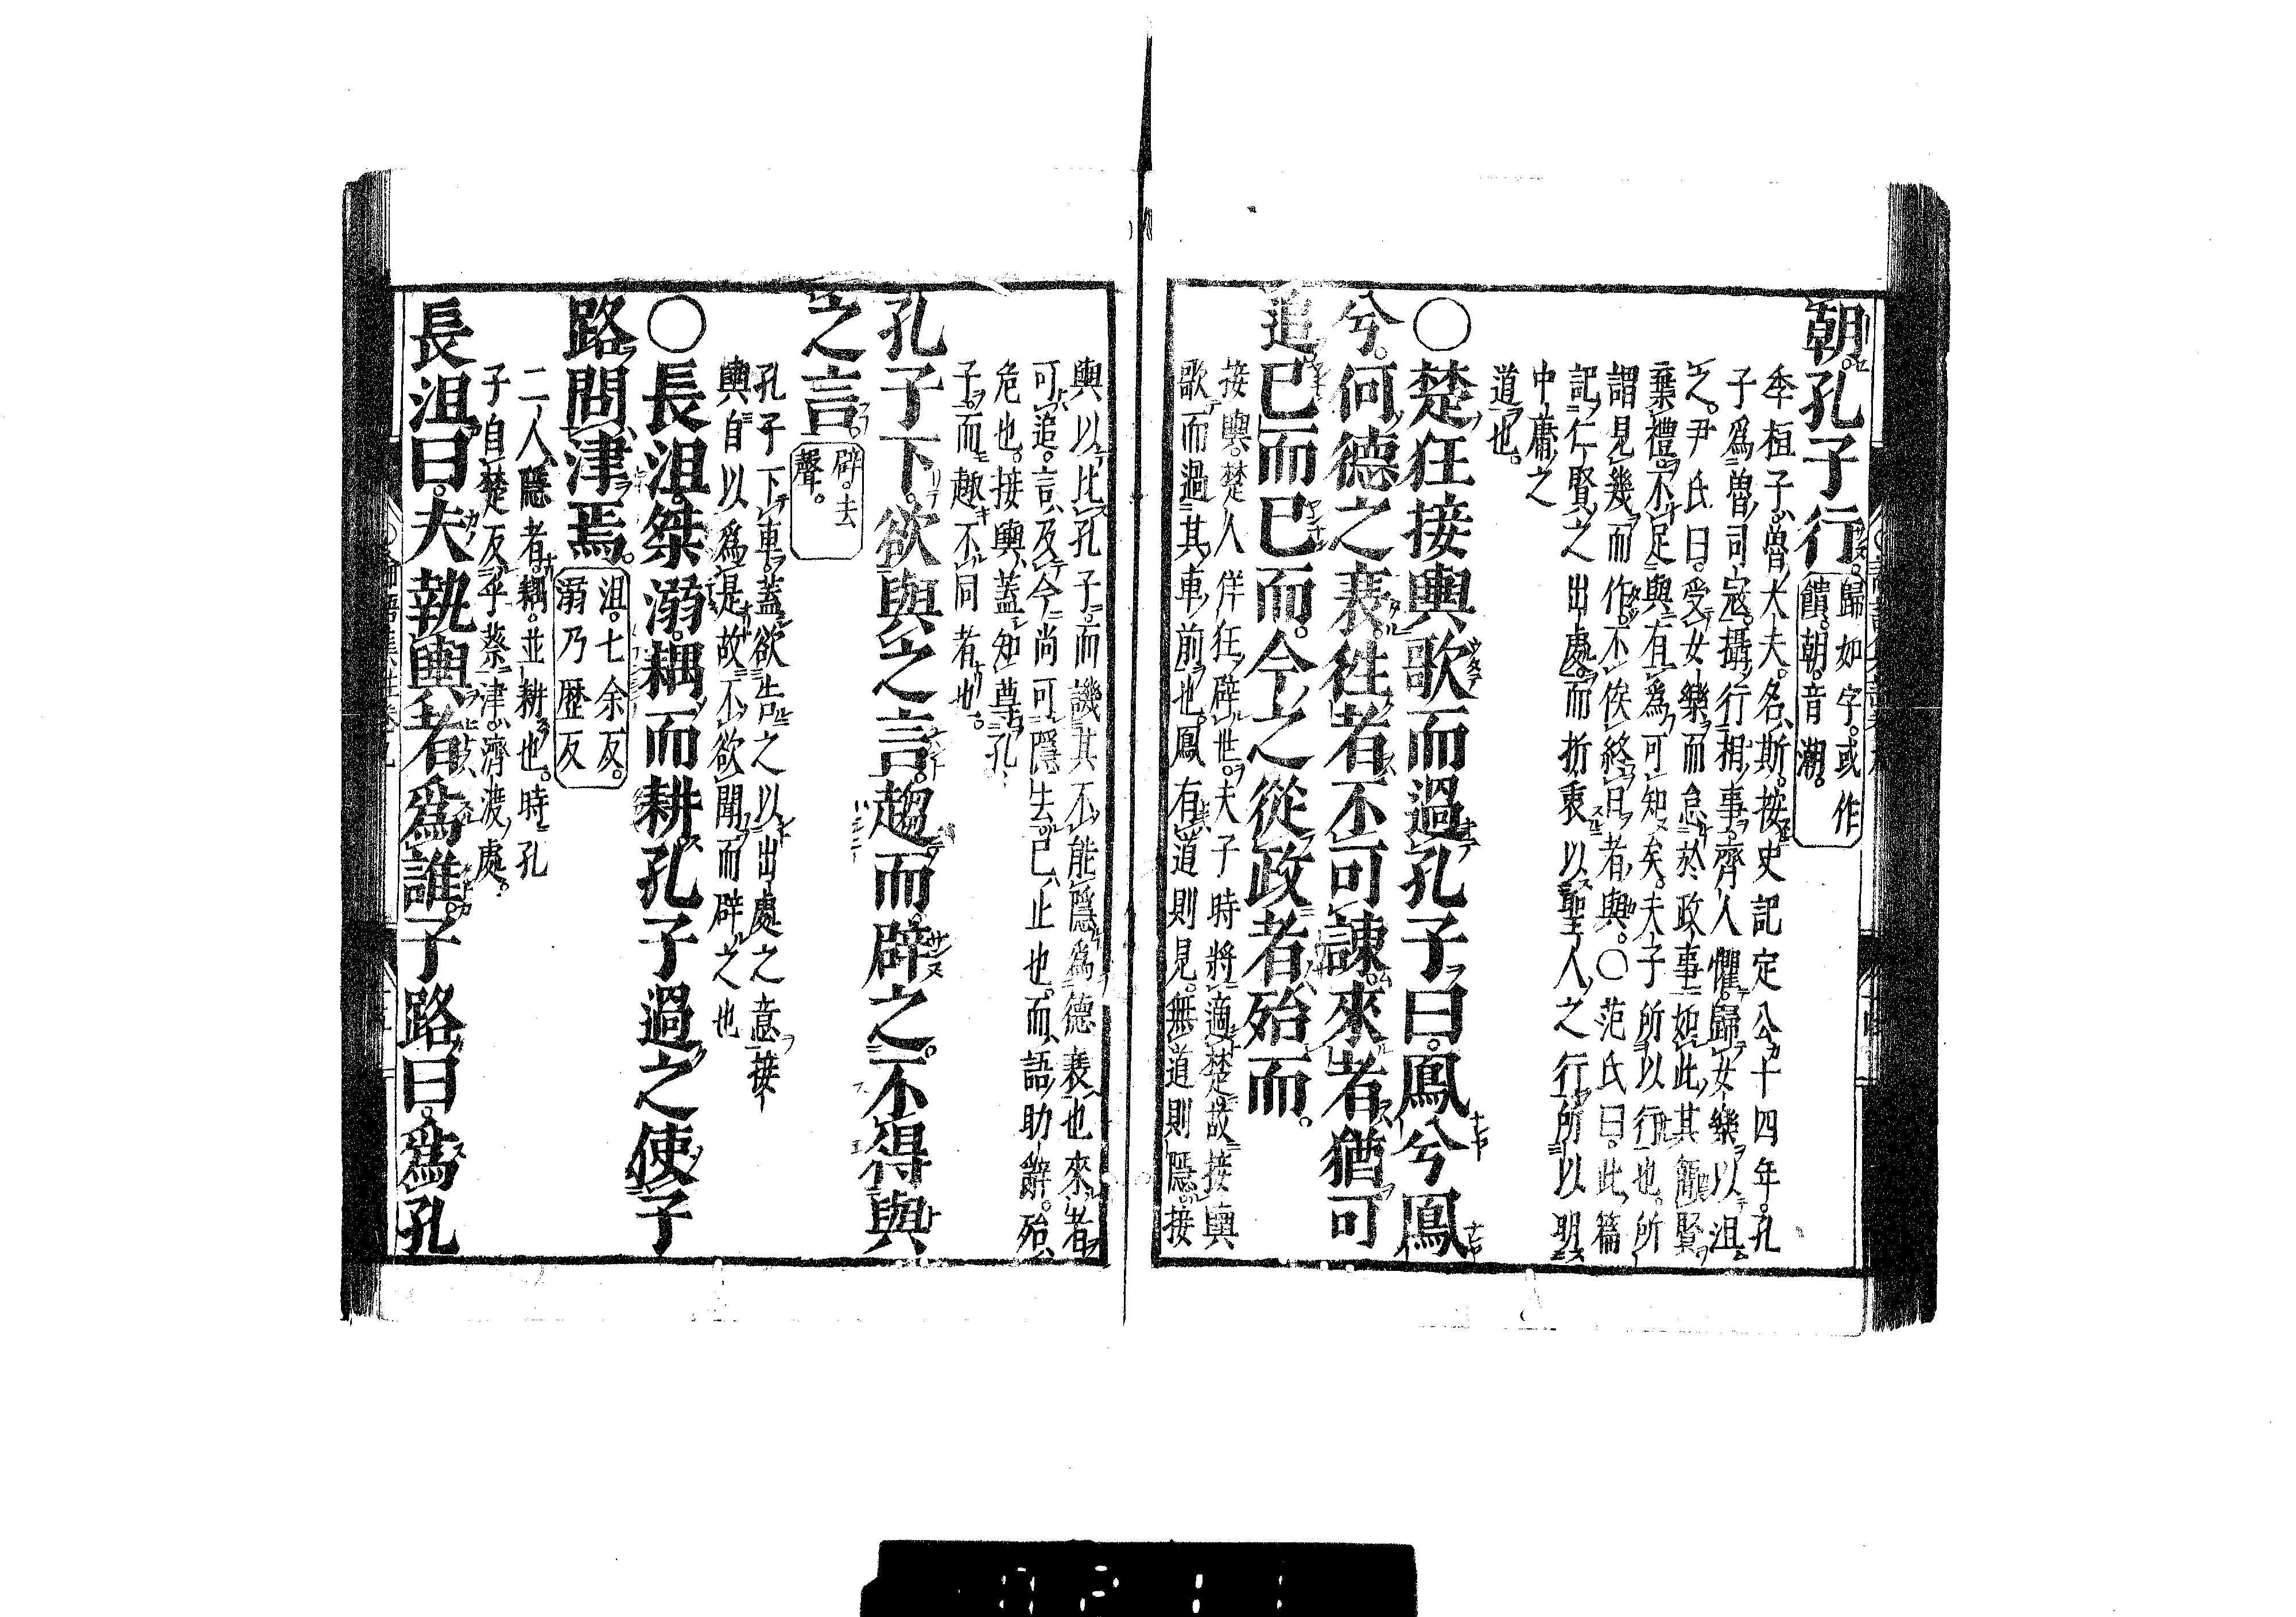 朝。孔子行。
歸如字。或作
饋。朝。音潮。
季桓子。魯大夫。名斯。按史記定公十四年。孔
子爲魯司寇。攝行相事。齊人懼。歸女樂以沮
之。尹氏曰。受女樂而怠於政事如此。其簡賢
棄禮。不足與有爲可知矣。夫子所以行也。所
謂見幾而作。不俟終日者與。○范氏曰。此篇
記仁賢之出處。而折衷以聖人之行。所以明
中庸之
道也。
○楚狂接輿歌而過孔子曰。鳳兮鳳
兮。何德之衰。往者不可諫。來者猶可
追。已而已而。今之從政者殆而。
接輿。楚人。佯狂辟世。夫子時將適楚。故接輿
歌而過其車前也。鳳有道則見。無道則隱。接
輿以比孔子。而譏其不能隱爲德衰也。來者
可追。言及今尚可隱去。已、止也。而、語助辭。殆、
危也。接輿、蓋知尊孔
子。而趣不同者也。
孔子下。欲與之言。趨而辟之。不得與
之言。
辟。去
聲。
孔子下車。蓋欲告之以出處之意。接
輿自以爲是。故不欲聞而辟之也
○長沮。桀溺。耦而耕。孔子過之。使子
路問津焉。
沮。七余反。
溺乃歴反
二人隱者。耦。並耕也。時孔
子自楚反乎蔡。津、濟渡處。
長沮曰。夫執輿者爲誰。子路曰。爲孔